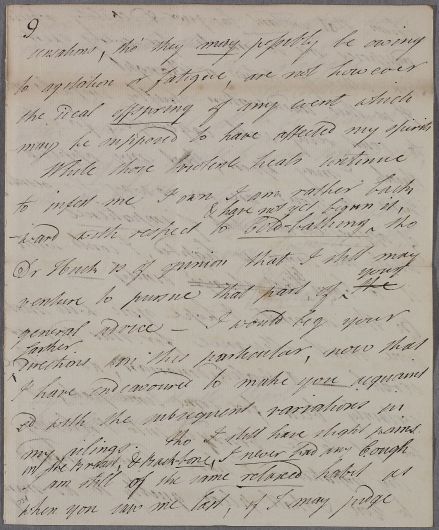 9
sensations, tho' they may possibly be owing
to agitation or fatigue, are not however
the ideal offspring of any event which
may be supposed to have affected my spirits
While those hectical heats continue
to infest me I own I am rather back
& have not yet begun it,
-ward with respect to cold-bathing, tho
Dr Huck is of opinion that I still may
venture to pursue that part of your the
general advice – I would beg your
farther
directions on this particular, now that
I have endeavoured to make you acquaint
ed with the subsequent variations in
my ailings. Tho I still have slight pains
in the Breast, & Back-bone, I never had any Cough
am still of the same relaxed habit as
when you saw me last, if I may judge